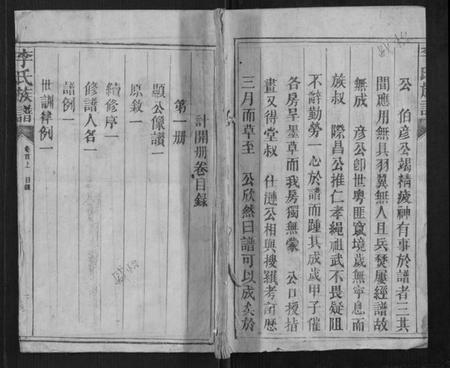 李氏族譜
公　伯彥公竭精疲神有事於譜者三其
間應用無具羽翼無人且兵燹屢經譜故
無成　彥公卽世粵匪竄境歲無寧息而
族叔　際昌公推仁孝繩祖武不畏疑阻
不辭勤勞一心於譜而踵其成歲甲子催
各房呈墨草而我房獨無蒙　公口授指
畫又得堂叔　仕漣公相與搜羅考訂歷
三月而草至　公欣然曰譜可以成矣於
計開册卷目錄
第一册
顯公像讚一
原敘一
續修序一
修譜人名一
譜例一
世訓律例一
李氏族譜
卷首上　目錄